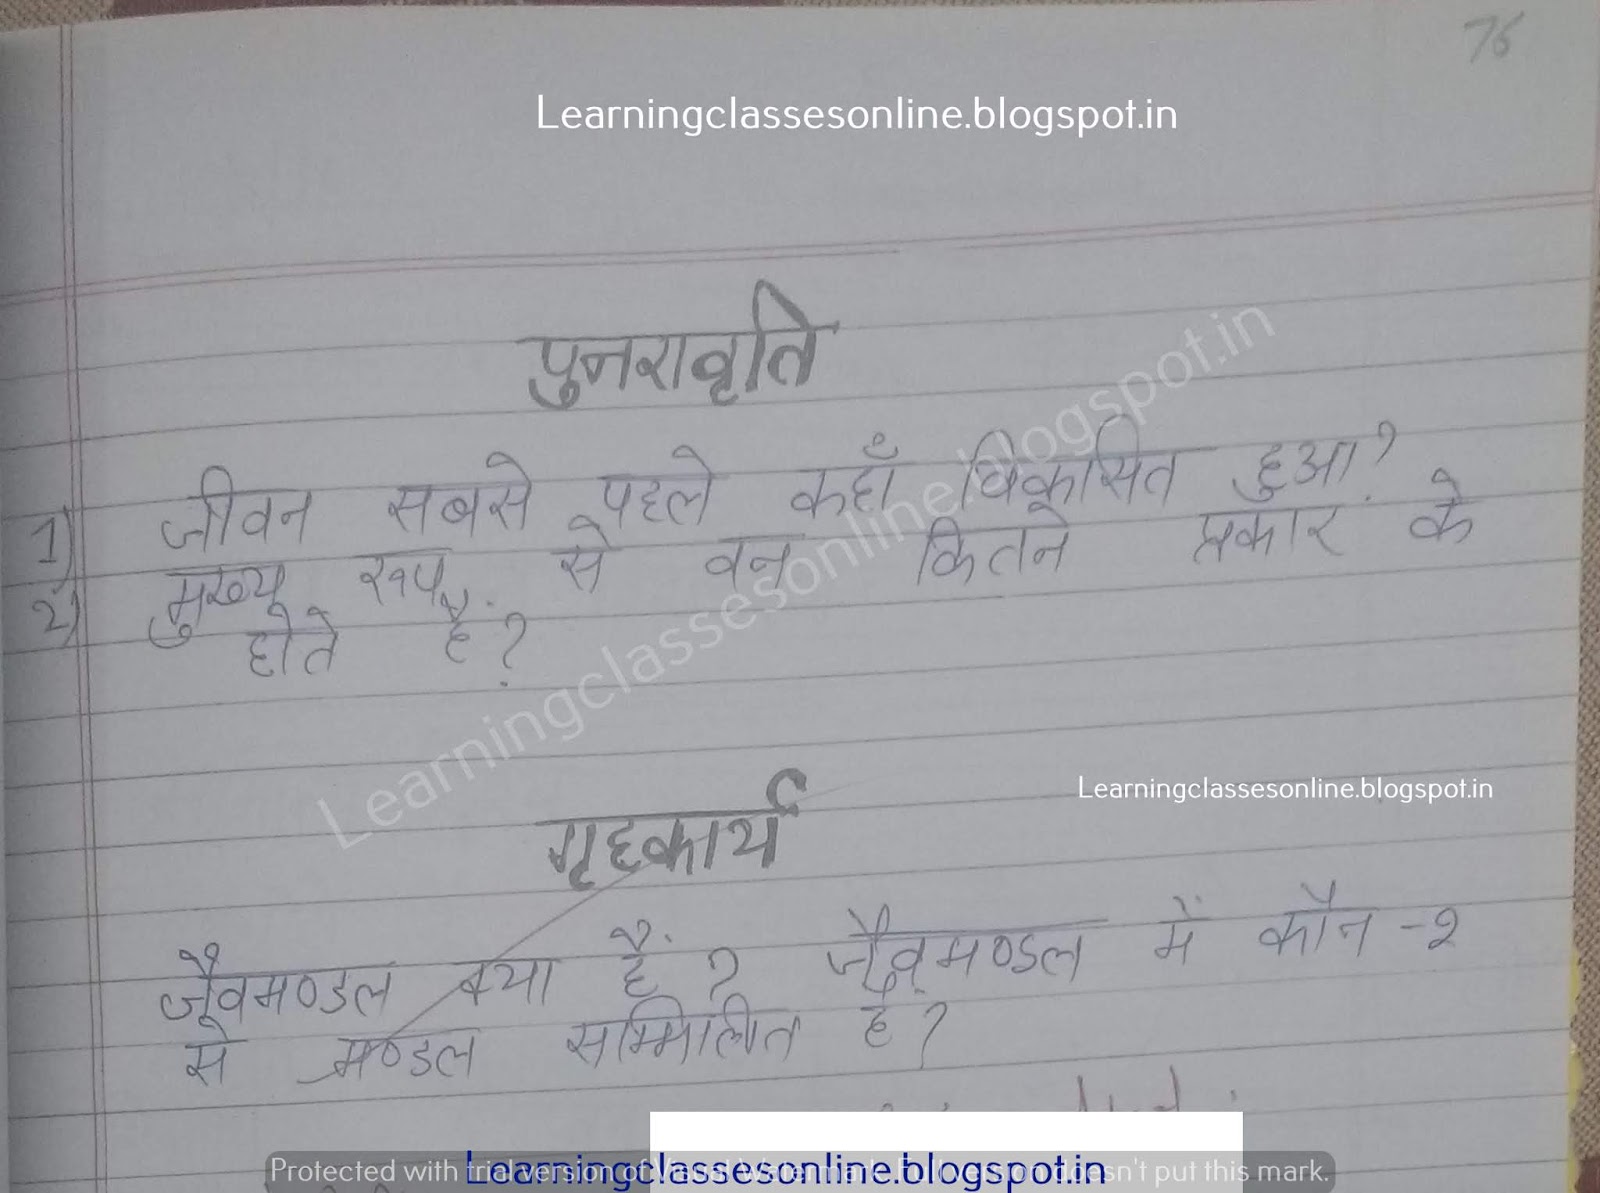 76
Learningclassesonline.blogspot.in
पुनरावृति
1) जीवन सबसे पहले कहाँ विकसित हुआ?
2) मुख्य रूप से वन कितने प्रकार के
होते हैं?
Learningclassesonline.blogspot.in
Learningclassesonline.blogspot.in
गृहकार्य
जैवमण्डल क्या हैं? जैवमण्डल में कौन-२
से मण्डल सम्मिलीत है?
Learningclassesonline.blogspot.in
Protected with trial version of Visual Watermark. Full version doesn't put this mark.